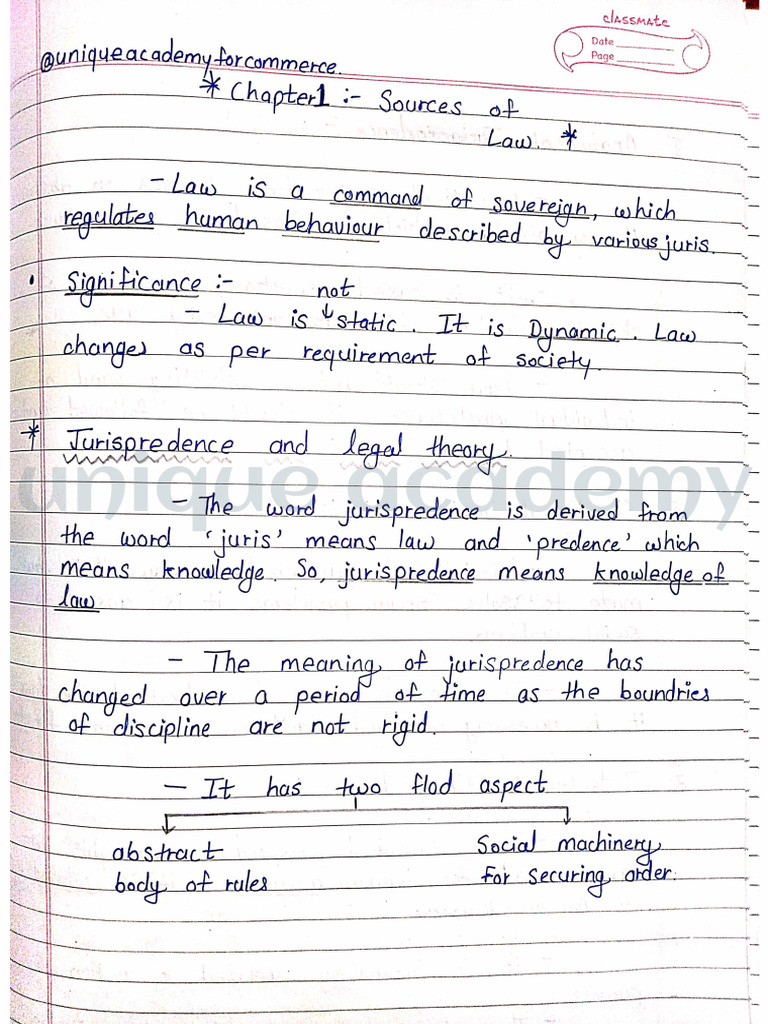 classmate
Date
Page
@uniqueacademyforcommerce.
* Chapter1 :- Sources of
Law. *
- Law is a command of sovereign, which
regulates human behaviour described by various juris.
Significance :-
not
- Law is ↓ static. It is Dynamic. Law
changes as per requirement of society.
* Jurispredence and legal theory.
unique academy
- The word jurispredence is derived from
the word 'juris' means law and 'predence' which
means knowledge. So, jurispredence means knowledge of
law
- The meaning of jurispredence has
changed over a period of time as the boundries
of discipline are not rigid.
- It has two flod aspect
abstract
body of rules
Social machinery
for securing order.